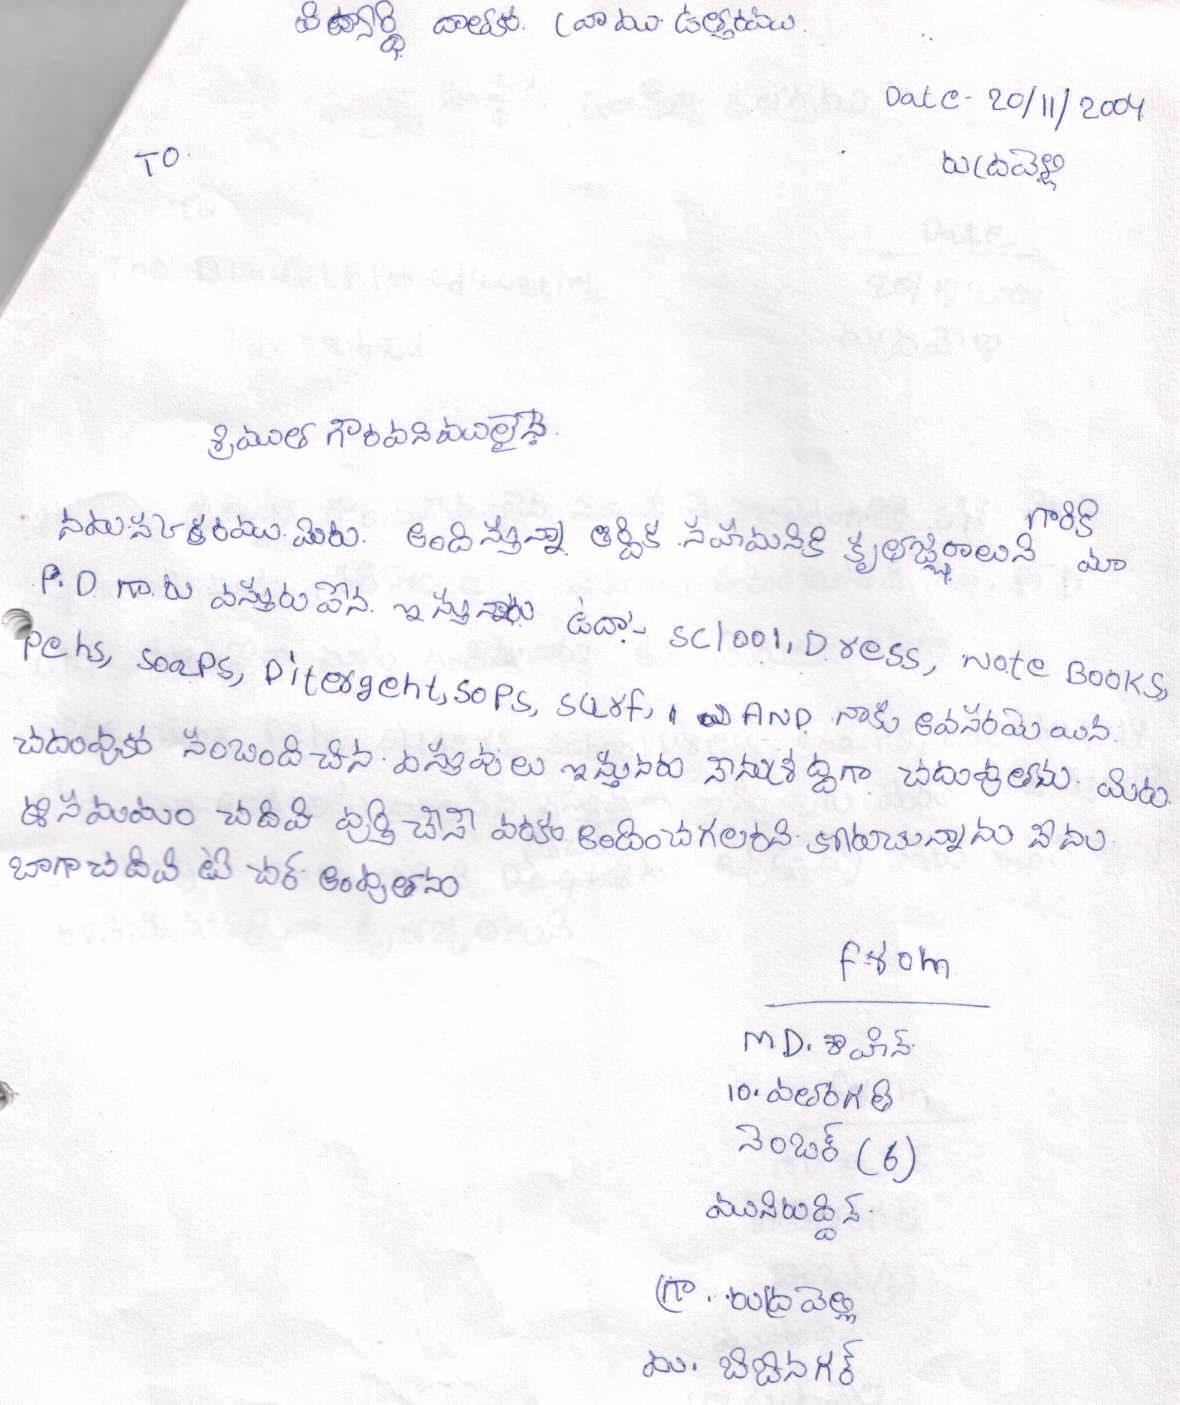 దాతకు వ్రాయు ఉత్తరము.
Date - 20/11/2004
TO.
రుద్రవెల్లి
శ్రీముత గౌరవనియులైన
నమస్కరము. మీరు. అందిస్తున్నా ఆర్థిక సహయనికి కృతజ్ఞరాలుని మా
గారికి
P.D. గారు వస్తురు పేన. ఇస్తున్నారు ఉదా:- sclool, Dress, Note Books,
Pens, soaps, Ditergent, sops, surf, AND నాకు అవసరమె యిన.
చదువుకు సంబందిచిన. వస్తువులు ఇస్తువరు నేను శ్రద్దగా చదువుతాను. మీరు.
ఈ సమయం చదివి పుర్తి చేసే వరకు అందించగలరని కోరుచున్నాను నేను
బాగా చదివి టీ చర్ అంవుతాను
from
MD. శాహిన్
10. వతరగతి
నెంబర్ (6)
మునిరుద్దిన్.
గ్రా. రుద్రవెల్లి
మ. బిబినగర్